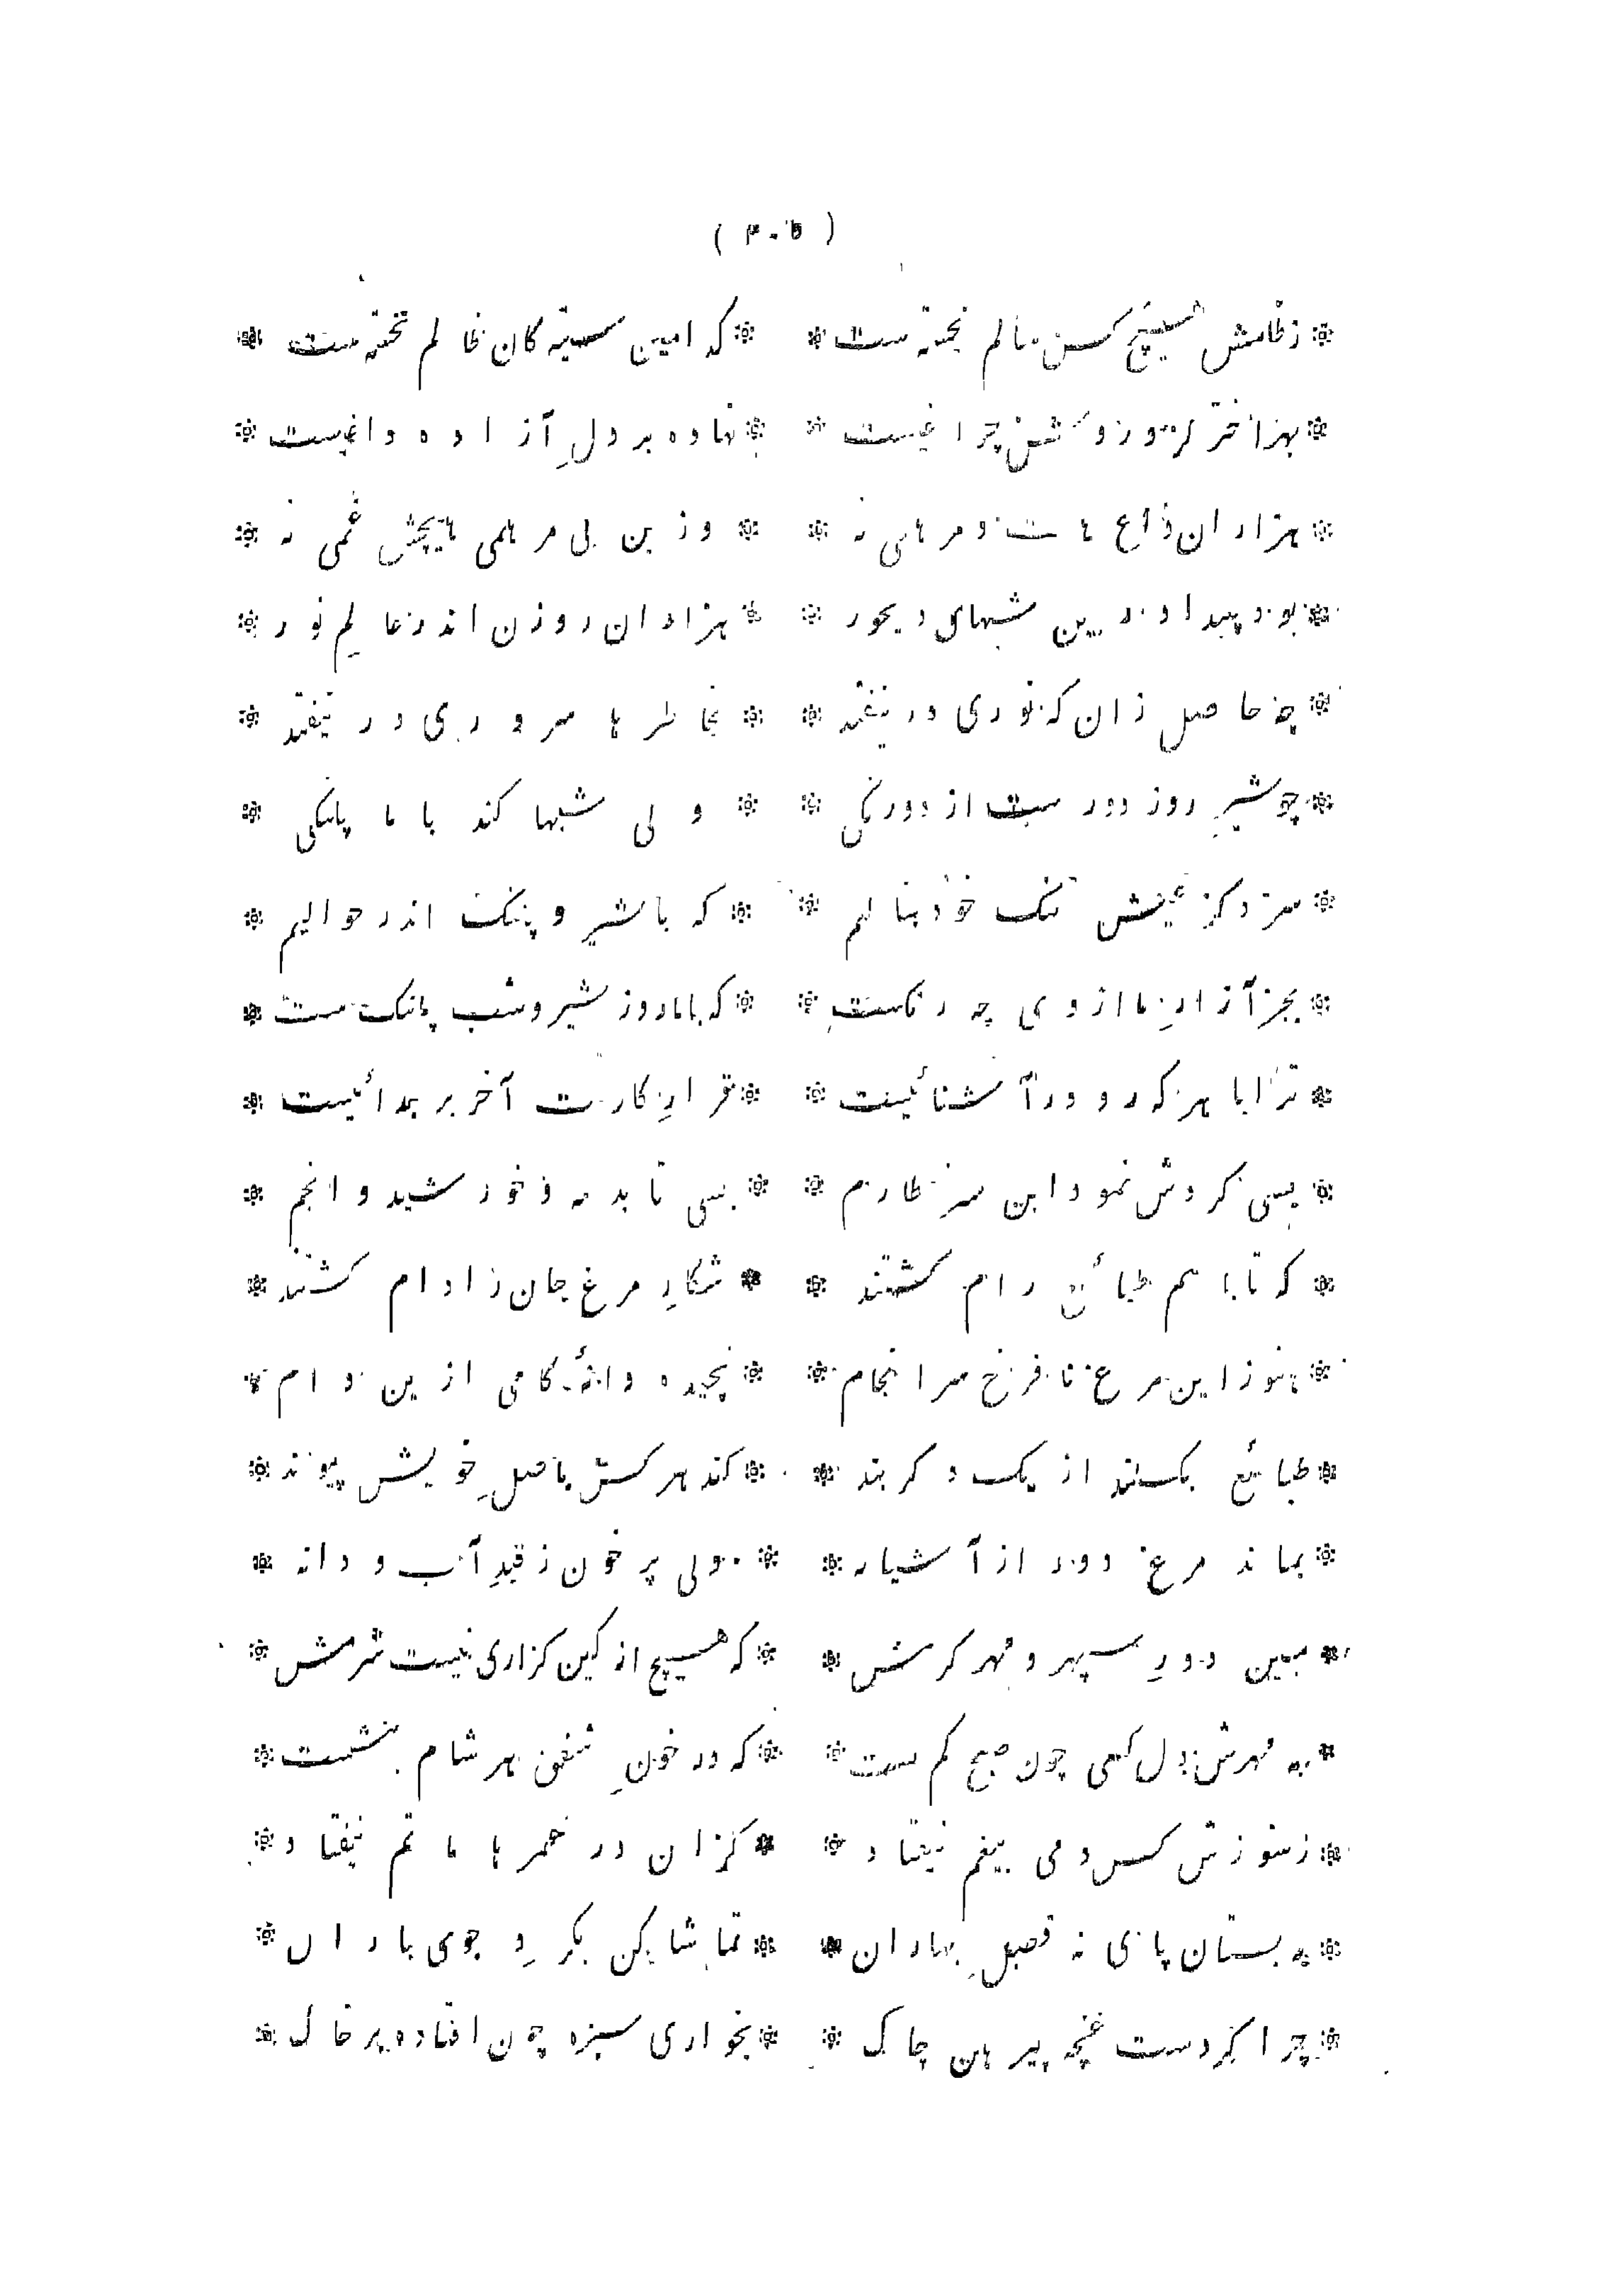 ( ۳۰۵ )
* ز ظلمش هیچکس سالم نجسته ست * که امین سینه کان ظالم نخسته ست *
* بهر اختر کز و روشن چراغیست * نهاده بر دلِ آزاده داغیست *
* هزاران داغ هست و مرهمی نه * وزین بی مرهمی هیچش غمی نه *
* بود پیدا درین شبهای دیجور * هزاران روزن اندر عالمِ نور *
* چه حاصل زان که نوری در نیفتد * بخاطرها سروری در نیفتد *
* چو شیرِ روز دورست از دورنگی * ولی شبها کند با ما پلنگی *
* سزد کز عیشِ تنگِ خود بنالیم * که با شیر و پلنگ اندر حوالیم *
* بجز آزارِ ما از وی چه رنگست * که با ما روز شیر و شب پلنگ ست *
* ترا با هر که رو در آشنائیست * قرارِ کارت آخر بر جدائیست *
* بسی گردش نمود این سبز طارم * بسی تابد مه و خورشید و انجم *
* که تا با هم طبائع رام گشتند * شکارِ مرغِ جان را دام گشتند *
* هنوز این مرغ نافرخ سرانجام * نچیده دانهٔ کامی ازین دام *
* طبائع بگسلند از یک دگر بند * کند هر کس باصلِ خویش پیوند *
* بماند مرغ دور از آشیانه * دلی پر خون ز قیدِ آب و دانه *
* مبین دورِ سپهر و مهر گرمش * که هیچ از کین گزاری نیست شرمش *
* به مهرش دل کسی چون صبح کم بست * که در خونِ شفق هر شام ننشست *
* ز سوزش کس دمی بیغم نیفتاد * کزان در عمرها ماتم نیفتاد *
* به بستان پای نه فصلِ بهاران * تماشا کن بگردِ جوی باران *
* چرا کردست غنچه پیرهن چاک * بخواری سبزه چون افتاده بر خاک *